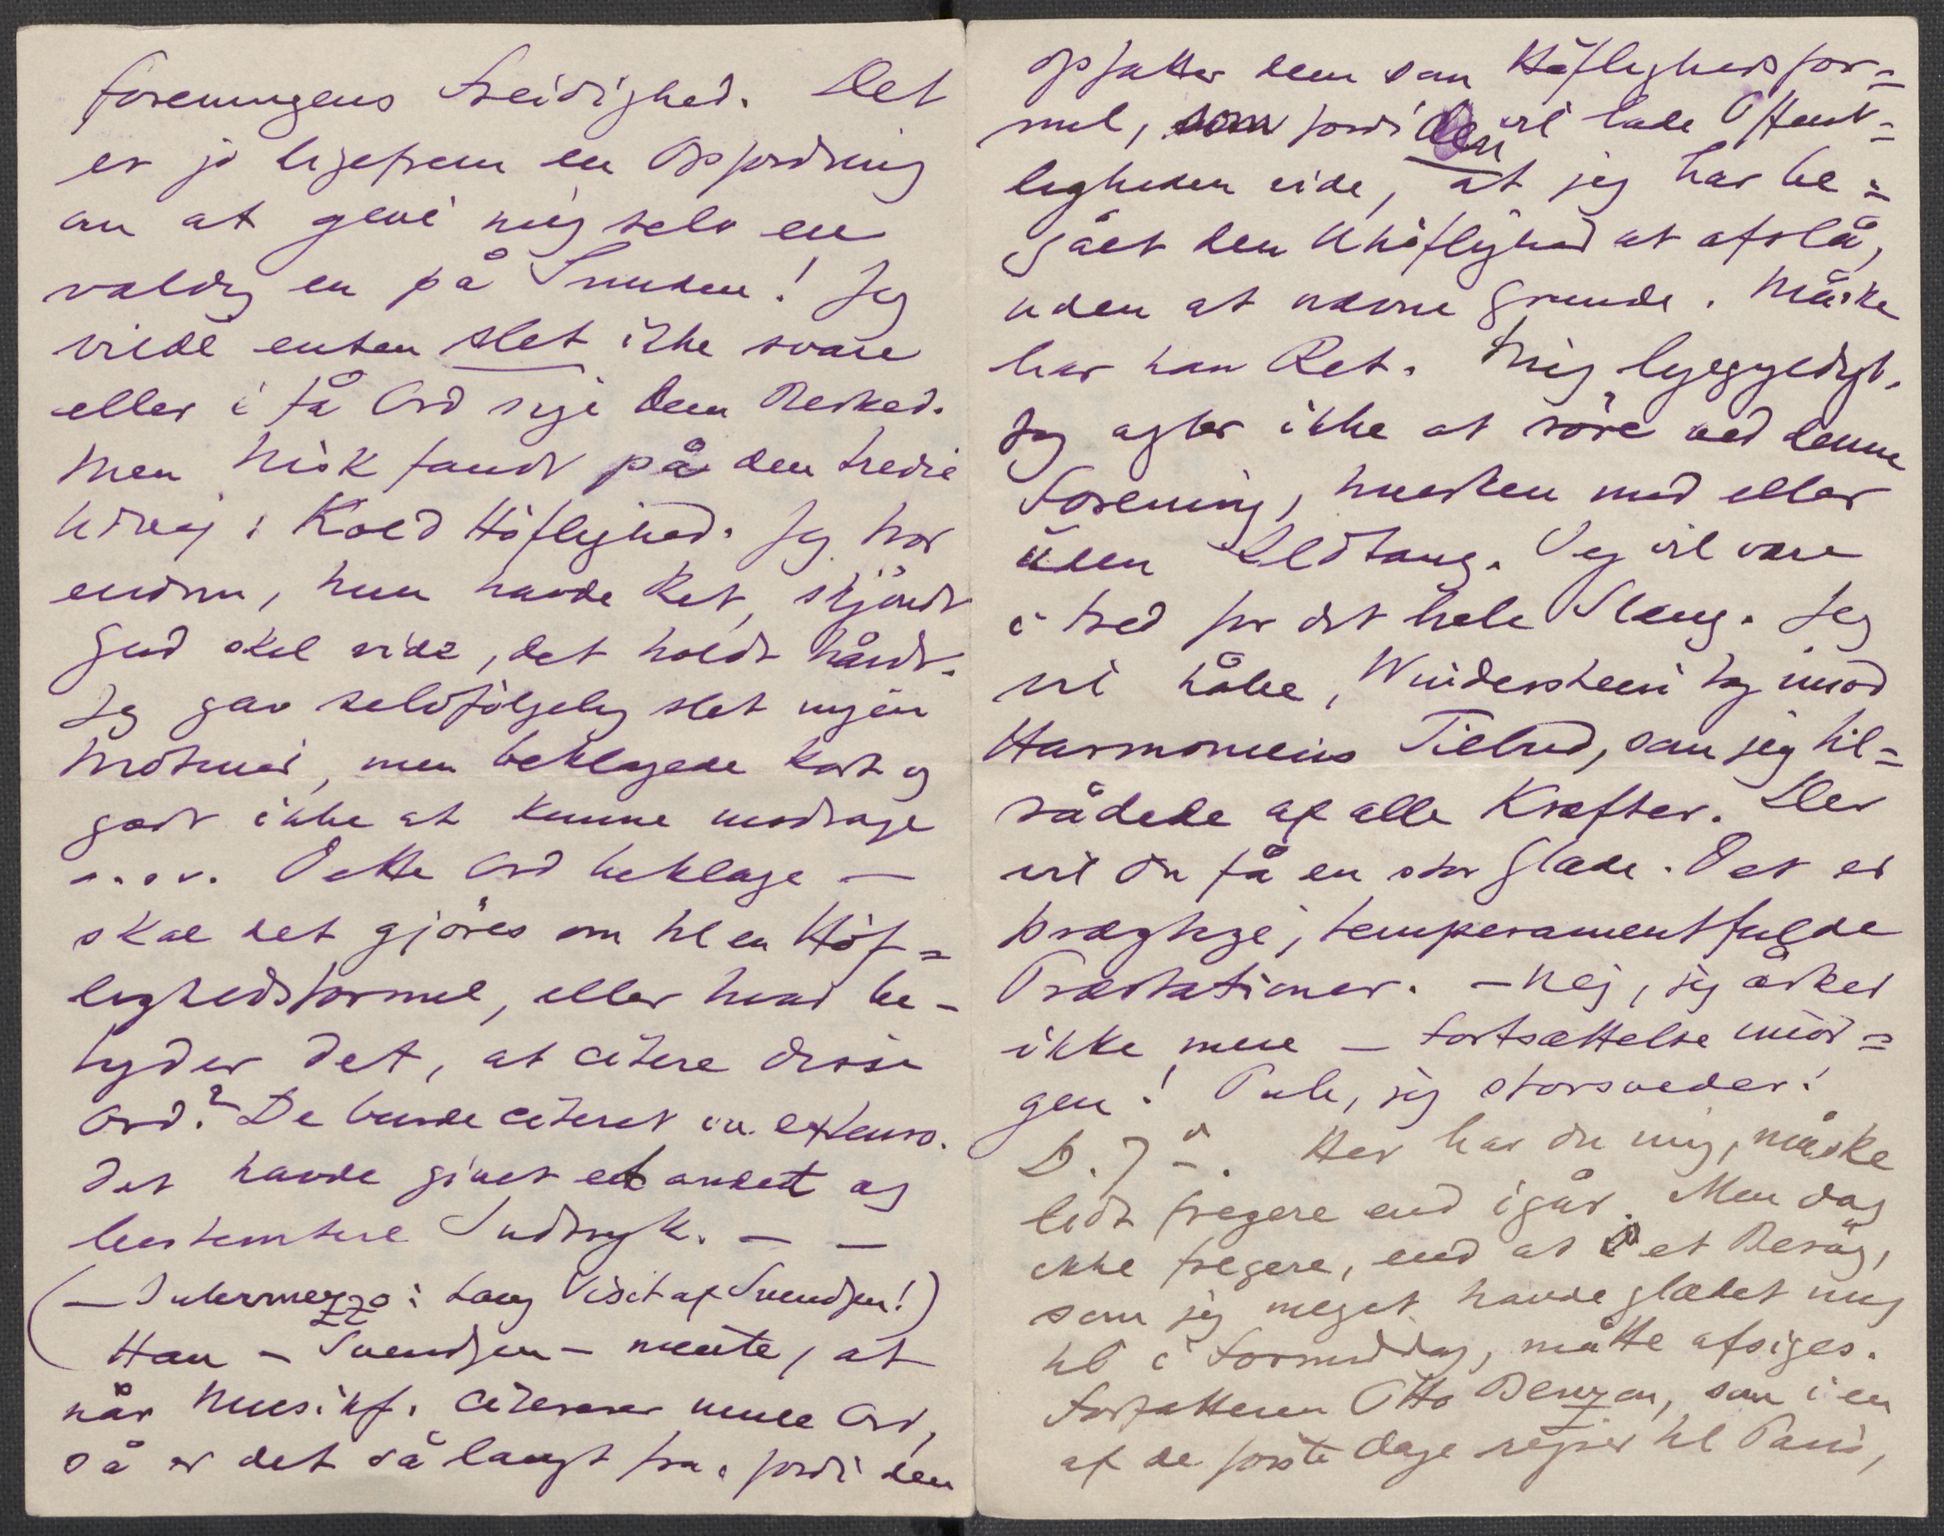 foreningens Freidighed. Det
er jo ligefrem en Opfordring
om at give mig selv en
vældig en på Snuden! Jeg
vilde enten slet ikke svare
eller i få Ord sige dem Besked.
Men Nisk fandt på den tredie
Udvej: Kold Höflighed. Jeg tror
endnu, hun havde Ret, skjöndt
Gud skal vide, det holdt hårdt.
Jeg gav selvfölgelig slet ingen
Motiver, men beklagede kort og
godt ikke at kunne modtage
o.s.v. Dette Ord beklage –
skal det gjöres om til en Höf=
lighedsformel, eller hvad be-
tyder det, at citere disse
Ord? De burde citeret in extenso.
Det havde givet et andet og
bestemtere Indtryk. – –
(– Intermezzo: Lang Visit af Svendsen!)
Han – Svendsen – mente, at
når Musikf. citerer mine Ord,
så er det så langt fra, fordi den
opfatter dem som Höflighedsfor=
mel, som fordi den vil lade Offent=
ligheden vide, at jeg har be=
gået den Uhöflighed at afslå,
uden at nævne Grunde. Måske
har han Ret. Mig ligegyldigt.
Jeg agter ikke at röre ved denne
Forening, hverken med eller
uden Ildtang. Jeg vil være
i Fred for det hele Slæng. Jeg
vil håbe, Winderstein tog imod
Harmoniens Tilbud, som jeg til=
rådede af alle Kræfter. Der
vil du få en stor Glæde. Det er
prægtige, temperamentfulde
Præstationer. – Nej, jeg orker
ikke mere – Fortsættelse imor=
gen! Puh, jeg storsveder!
D. 7de. Her har du mig, måske
lidt fregere end igår. Men dog
ikke fregere, end at et Besög,
som jeg meget havde glædet mig
til i Formiddag, måtte afsiges.
Forfatteren Otto Benzon, som i en
af de förste Dage rejser til Paris,